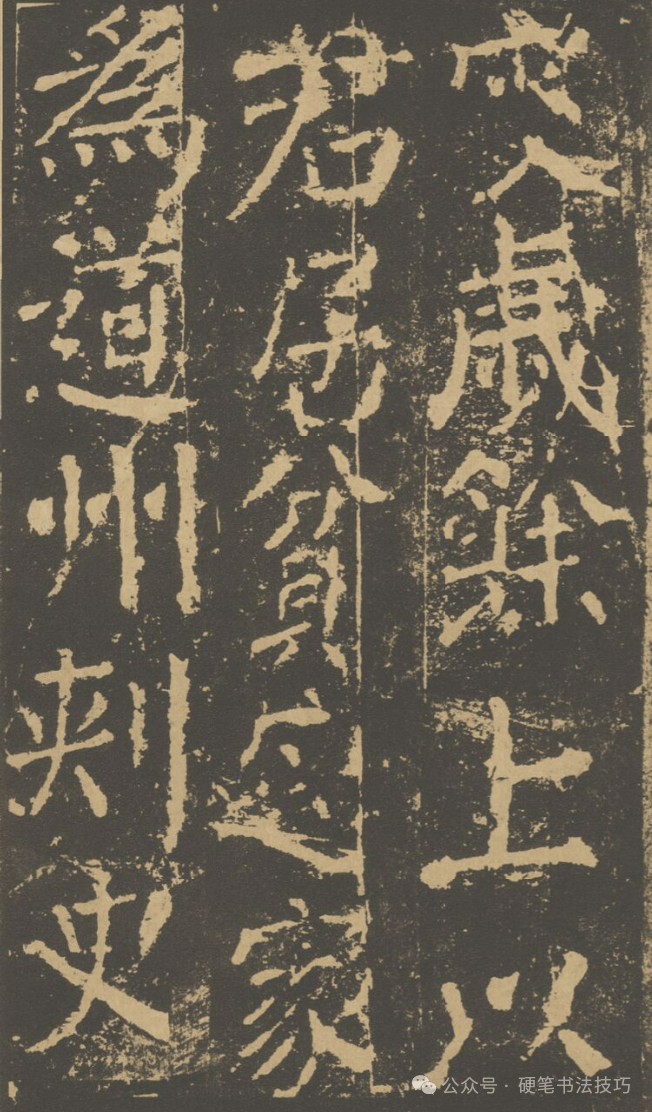 歲餘上以
君居貧起家
為道州刺史
公众号 · 硬笔书法技巧